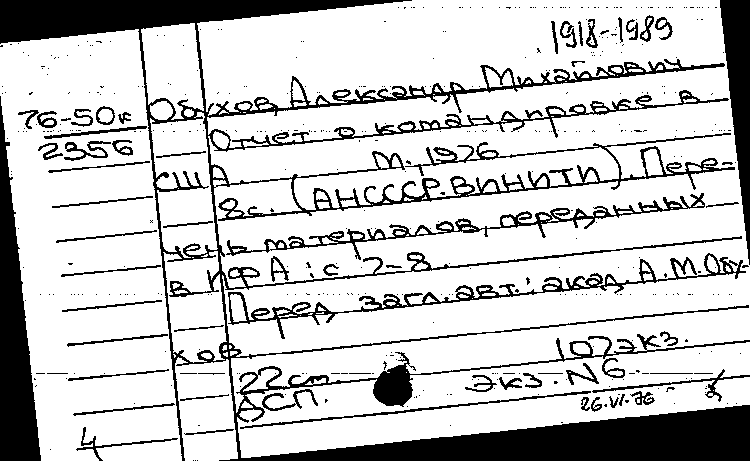 1918-1989
Обухов, Александр Михайлович.
76-50к
2356
Отчет о командировке в
США. М., 1976.
8с. (АНСССР.ВИНИТИ). Пере-
чень материалов, переданных
в ИФА: с 7-8.
Перед загл. авт.: акад. А.М.Обу-
хов.
107экз.
22см. экз. N6.
ДСП. 26.VI.76
4